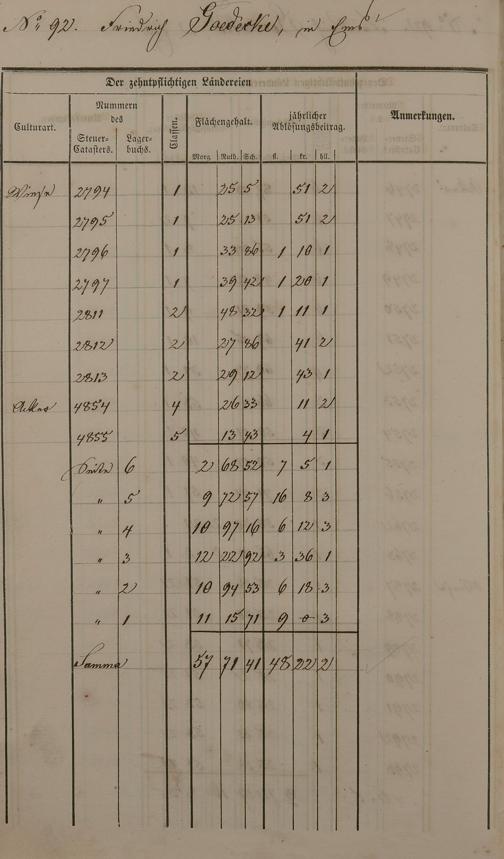 No 92. Friedrich Goedecke, in Ems
Der zehntpflichtigen Ländereien
Culturart. Nummern des Steuer-Catasters. Lagerbuchs. Classen. Flächengehalt. Morg. Ruth. Sch. jährlicher Ablösungsbeitrag. fl. kr. hll. Anmerkungen.
Wiese 2794 1 25 5 51 2
2795 1 25 13 51 2
2796 1 33 86 1 10 1
2797 1 39 42 1 20 1
2811 2 48 32 1 11 1
2812 2 27 86 41 2
2813 2 29 12 43 1
Acker 4854 4 26 33 11 2
4855 5 13 43 4 1
Seite 6 2 68 52 7 5 1
" 5 9 72 57 16 8 3
" 4 10 97 16 6 12 3
" 3 12 22 92 3 36 1
" 2 10 94 53 6 18 3
" 1 11 15 71 9 0 3
Summa 57 71 41 48 22 2